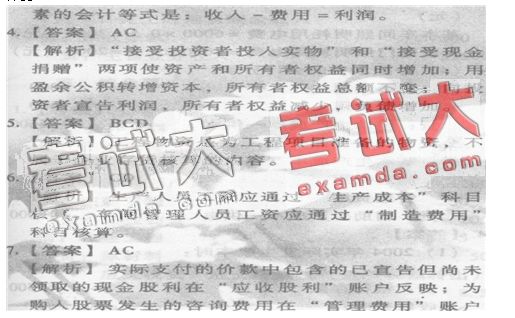 素的会计等式是：收入－费用＝利润。
4.【答案】 AC
【解析】“接受投资者投入实物”和“接受现金
捐赠”两项使资产和所有者权益同时增加；用
盈余公积转增资本，所有者权益总额不变；向投
资者宣告利润，所有者权益减少，
增加
5.【答案】 BCD
【解析】工程物资是为工程项目准备的物资，不
内容。
6.
人员工资应通过“生产成本”科目
管理人员工资应通过“制造费用”
科目核算。
7.【答案】 AC
【解析】 实际支付的价款中包含的已宣告但尚未
领取的现金股利在“应收股利”账户反映；为
购入股票发生的咨询费用在“管理费用”账户
考试大
examda.com
考试大
examda.com